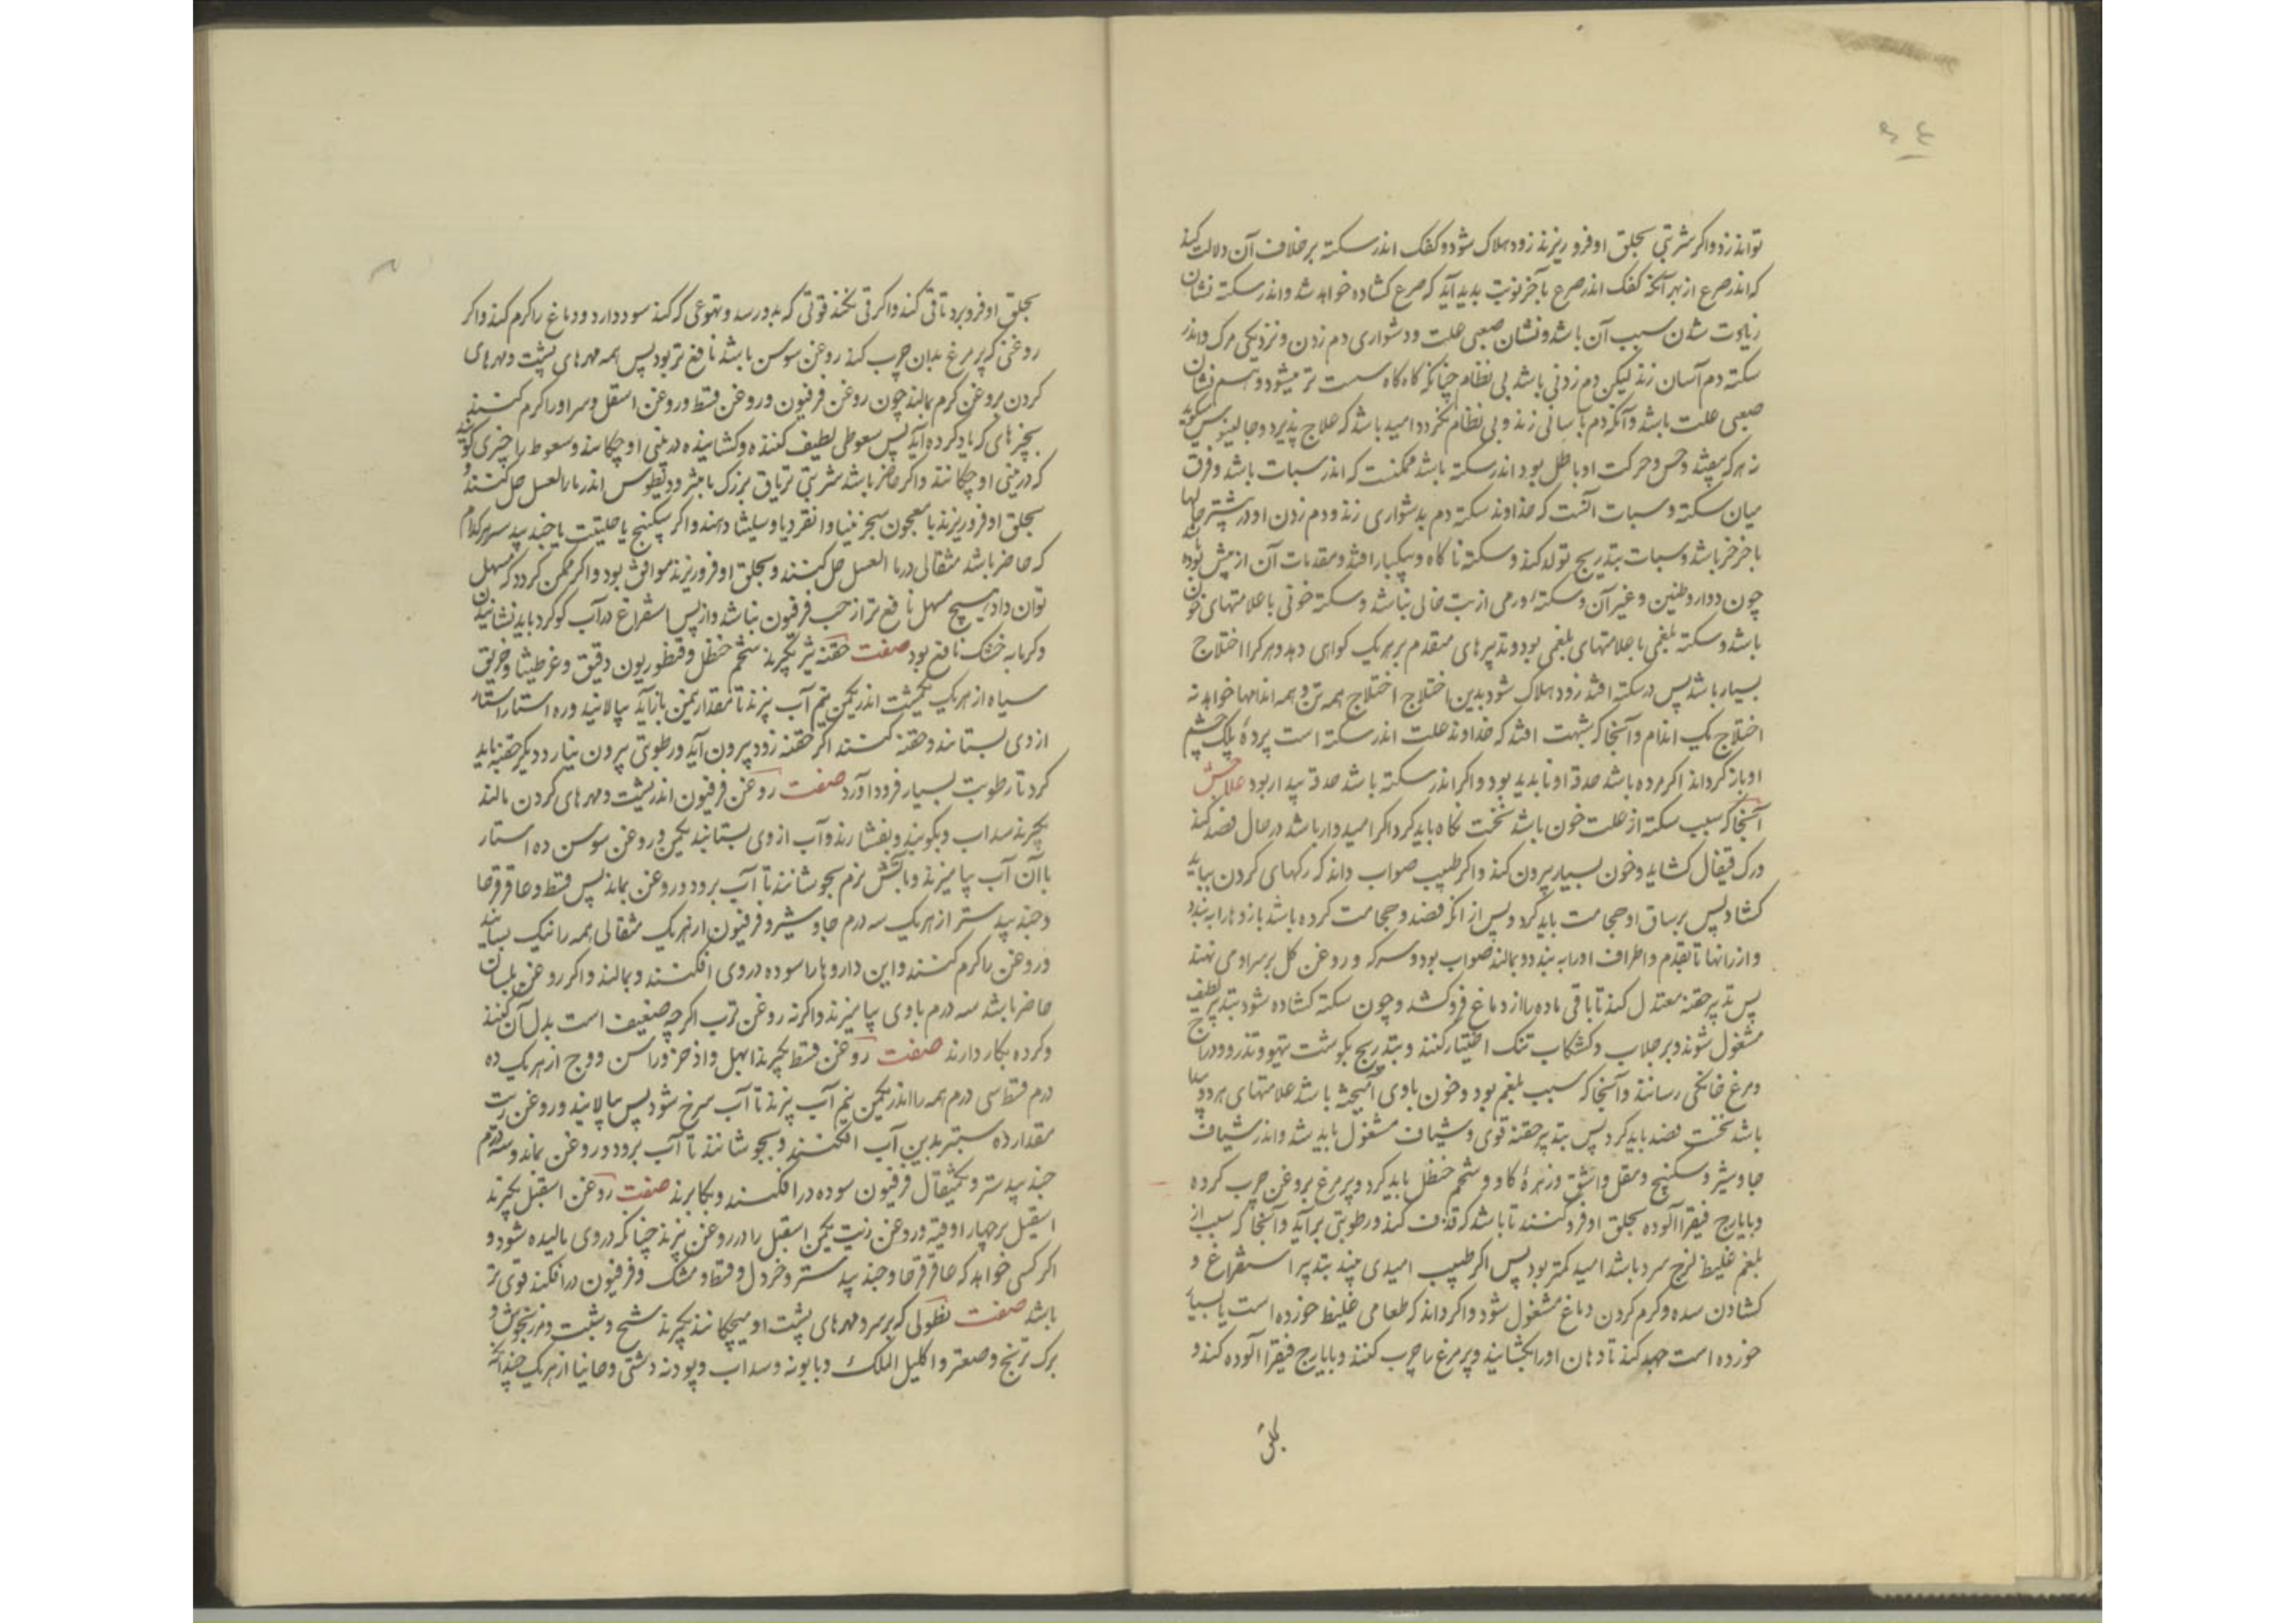 تواند زد و اکر شربتی بحلق او فرو ریزند زود هلاک شود و کفک اندر سکته بر خلاف آن دلالت کند
که اندر صرع از بهر آنکه کفک اندر صرع بآخر نوبت پدید آید که صرع کشاده خواهد شد و اندر سکته نشان
زیادت شدن سبب آن باشد و نشان صعبی علت و دشواری دم زدن و نزدیکی مرک و اندر
سکته دم آسان زند لیکن دم زدنی باشد بی نظام چنانکه کاه کاه سست تر میشود و هم نشان
صعبی علت باشد و آنکه دم بآسانی زند و بی نظام نکردد امید باشد که علاج پذیرد و جالینوس کوید
نه هر که بیفتد و حس و حرکت او باطل بود اندر سکته باشد ممکنست که اندر سبات باشد و فرق
میان سکته و سبات آنست که خداوند سکته دم بدشواری زند و دم زدن او در بیشتر حالها
با خرخر باشد و سبات بتدریج تولد کند و سکته ناکاه و بیکبار افتد و مقدمات آن از پیش بوده
چون دوار و طنین و غیر آن و سکته ورمی از تب خالی نباشد و سکته خونی با علامتهای خون
باشد و سکته بلغمی با علامتهای بلغمی بود و تدبیرهای متقدم بر هر یک کواهی دهد و هر کرا اختلاج
بسیار باشد پس در سکته افتد زود هلاک شود بدین اختلاج اختلاج همه تن و همه اندامها خواهد نه
اختلاج یک اندام و آنجا که شبهت افتد که خداوند علت اندر سکته است پردهٔ پلک چشم
او باز کرداند اکر مرده باشد حدقه او ناپدید بود و اکر اندر سکته باشد حدقه پیدار بود علاجش
آنجا که سبب سکته از علت خون باشد نخست نکاه باید کرد اکر امیدوار باشد در حال فصد کند
و رک قیفال کشاید و خون بسیار بیرون کند و اکر طبیب صواب داند که رکهای کردن بباید
کشاد پس بر ساق او حجامت باید کرد و پس از انکه فصد و حجامت کرده باشد بازوها را به بندد
و از رانها تا بقدم و اطراف او را به بندد و بمالند صواب بود و سرکه و روغن کل بر سر او می نهند
پس تدبیر حقنه معتدل کند تا باقی ماده را از دماغ فرو کشد و چون سکته کشاده شود بتدبیر لطیف
مشغول شوند و بر جلاب و کشکاب تنک اختیار کنند و بتدریج بکوشت تیهو و تذرو و دراج
و مرغ خانکی رسانند و آنجا که سبب بلغم بود و خون باوی آمیخته باشد علامتهای هر دو پیدا
باشد نخست فصد باید کرد پس بتدبیر حقنه قوی و شیاف مشغول باید شد و اندر شیاف
جاوشیر و سکبینج و مقل و اشق و زهرهٔ کاو و شحم حنظل باید کرد و پر مرغ بروغن چرب کرده
و بایارج فیقرا آلوده بحلق او فرو کنند تا باشد که قذف کند و رطوبتی برآید و آنجا که سبب از
بلغم غلیظ لزج سرد باشد امید کمتر بود پس اکر طبیب امیدی بیند بتدبیر استفراغ و
کشادن سده و کرم کردن دماغ مشغول شود و اکر داند که طعامی غلیظ خورده است یا بسیار
خورده است جهد کند تا دهان او را بکشایند و پر مرغ را چرب کنند و بایارج فیقرا آلوده کند و
بحلق
بحلق او فرو برد تا قی کند و اکر قی نکند قوتی که بدو رسد و تهوعی که کند سود دارد و دماغ را کرم کند و اکر
روغنی که پر مرغ بدان چرب کند روغن سوسن باشد نافع تر بود پس همه مهرهای پشت و مهرهای
کردن بروغن کرم بمالند چون روغن فرفیون و روغن قسط و روغن اسقل و سر او را کرم کنند
بچیزهای که یاد کرده آید پس سعوطی لطیف کننده و کشاینده در بینی او چکانند و سعوط را چیزی کویند
که در بینی او چکانند و اکر حاضر باشد شربتی تریاق بزرک یا مثرودیطوس اندر ماء العسل حل کنند و
بحلق او فرو ریزند یا معجون سجزنینا و انقردیا و سلیثا دهند و اکر سکبینج یا حلتیت یا جند بیدستر هر کدام
که حاضر باشد مثقالی در ماء العسل حل کنند و بحلق او فرو ریزند موافق بود و اکر ممکن کردد که مسهل
توان داد هیچ مسهل نافع تر از حب فرفیون نباشد و از پس استفراغ در آب کوکرد باید نشانیدن
و کرمابه خشک نافع بود صفت حقنه تیز بکیرند شحم حنظل و قنطوریون دقیق و غرطنیثا و خربق
سیاه از هر یک یکمشت اندر یکمن نیم آب پزند تا بمقدار نیمن بازآید بپالایند و ده استار استار
از وی بستانند و حقنه کنند اکر حقنه زود بیرون آید و رطوبتی بیرون نیارد دیکر حقنه باید
کرد تا رطوبت بسیار فرود آورد صفت روغن فرفیون اندر پشت و مهرهای کردن مالند
بکیرند سداب و بکوبند و بفشارند و آب از وی بستانند یکمن و روغن سوسن ده استار
با آن آب بیامیزند و بآتش نرم بجوشانند تا آب برود و روغن بماند پس قسط و عاقرقرحا
و جند بیدستر از هر یک سه درم جاوشیر و فرفیون از هر یک مثقالی همه را نیک بسایند
و روغن را کرم کنند و این داروها را سوده در وی افکنند و بمالند و اکر روغن بلسان
حاضر باشد سه درم باوی بیامیزند و اکر نه روغن ترب اکر چه ضعیف است بدل آن کنند
و کرده بکار دارند صفت روغن قسط بکیرند ابهل و اذخر و راسن و وج از هر یک ده
درم قسط سی درم همه را اندر یکمن نیم آب پزند تا آب سرخ شود پس بپالایند و روغن زیت
مقدار ده ستیر بدین آب افکنند و بجوشانند تا آب برود و روغن بماند و سه درم
جند بیدستر و یکمثقال فرفیون سوده در افکنند و بکار برند صفت روغن اسقیل بکیرند
اسقیل تر چهار اوقیه و روغن زیت یکمن اسقیل را در روغن پزند چنانکه در وی مالیده شود و
اکر کسی خواهد که عاقرقرحا و جند بیدستر و خردل و قسط و مشک و فرفیون در افکند قوی تر
باشد صفت نطولی که بر سر و مهرهای پشت او میچکانند بکیرند شیح و شبت و مرزنجوش و
برک ترنج و صعتر و اکلیل الملک و بابونه و سداب و پودنه دشتی و حانیا از هر یک چندانکه